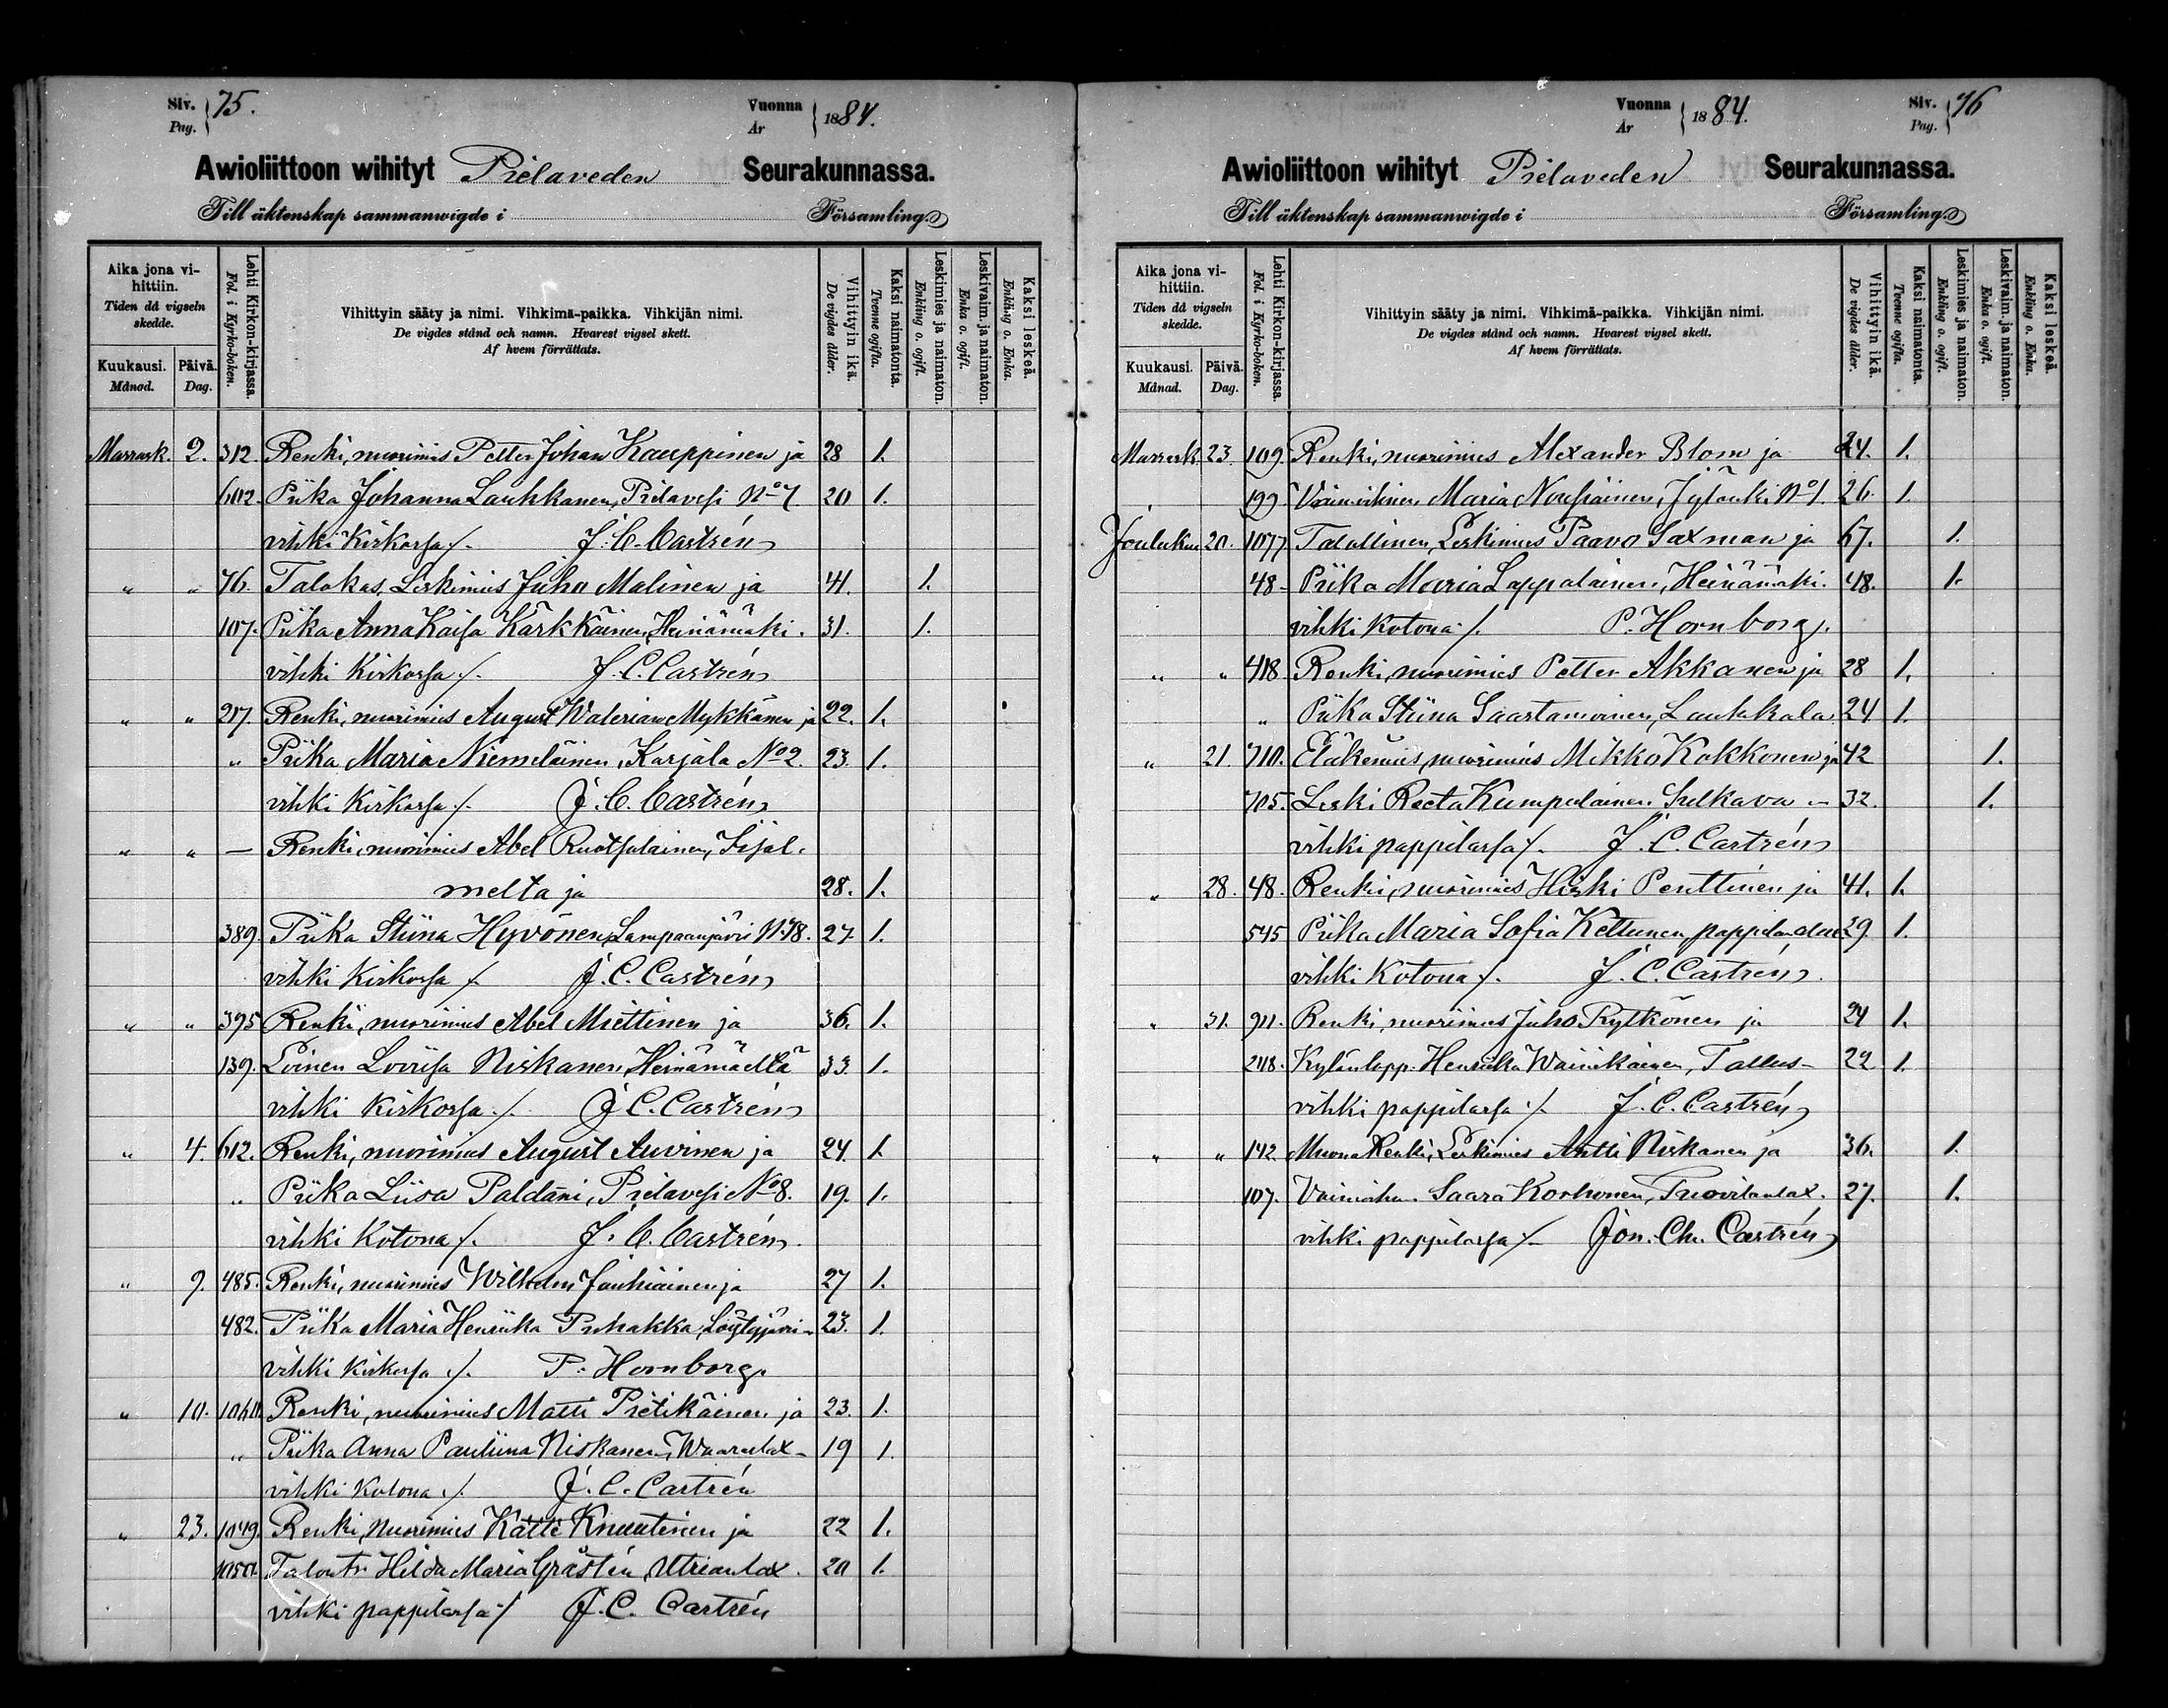 Siv. Pag. 75.
Vuonna År 1884.
Awioliittoon wihityt Pielaveden Seurakunnassa.
Till äktenskap sammanwigde i Församling.
Aika jona vihittiin. Tiden då vigseln skedde.
Kuukausi. Månad.
Päivä. Dag.
Lehti Kirkon-kirjassa. Fol. i Kyrko-boken.
Vihittyin sääty ja nimi. Vihkimä-paikka. Vihkijän nimi.
De vigdes stånd och namn. Hvarest vigsel skett.
Af hvem förrättats.
Vihittyin ikä. De vigdes ålder.
Kaksi naimatonta. Tvenne ogifta.
Leskimies ja naimaton. Enkling o. ogift.
Leskivaim. ja naimaton. Enka o. ogift.
Kaksi leskeä. Enkling o. Enka.
Marrask. 2. 312. Renki, nuorimies Petter Johan Kauppinen ja 28 1.
602. Piika Johanna Laukkanen, Pielavesi No 7. 20 1.
vihki Kirkossa /. J. C. Castrén
" " 76. Talokas, Leskimies Juho Malinen ja 41. 1.
107. Piika Anna Kaisa Kärkkäinen, Heinämäki. 31. 1.
vihki Kirkossa /. J. C. Castrén
" " 217. Renki, nuorimies August Walerian Mykkänen ja 22. 1.
" Piika Maria Niemeläinen, Karjala No 2. 23. 1.
vihki Kirkossa /. J. C. Castrén
" " — Renki, nuorimies Abel Ruotsalainen, Iisal-
melta ja 28. 1.
389. Piika Stiina Hyvönen, Lampaanjärvi N:18. 27. 1.
vihki Kirkossa /. J. C. Castrén
" " 395 Renki, nuorimies Abel Miettinen ja 36. 1.
139. Loinen Loviisa Niskanen, Heinämäeltä 33. 1.
vihki Kirkossa /. J. C. Castrén
" 4. 612. Renki, nuorimies August Auvinen ja 24. 1.
" Piika Liisa Paldani, Pielavesi No 8. 19. 1.
vihki Kotona /. J. C. Castrén
" 9. 485. Renki, nuorimies Wilhelm Jauhiainen ja 27 1.
482. Piika Maria Henriika Puhakka, Löytyjärvi 23. 1.
vihki Kirkossa /. P. Hornborg.
" 10. 1060. Renki, nuorimies Matti Pietikäinen ja 23. 1.
" Piika Anna Pauliina Niskanen, Waaralax 19 1.
vihki Kotona /. J. C. Castrén
" 23. 1049. Renki, nuorimies Kätti Knuutinen ja 22 1.
1050. Talontr. Hilda Maria Gråsten, Utrianlax. 20 1.
vihki pappilassa /. J. C. Castrén
Vuonna År 1884.
Siv. Pag. 76
Awioliittoon wihityt Pielaveden Seurakunnassa.
Till äktenskap sammanwigde i Församling.
Aika jona vihittiin. Tiden då vigseln skedde.
Kuukausi. Månad.
Päivä. Dag.
Lehti Kirkon-kirjassa. Fol. i Kyrko-boken.
Vihittyin sääty ja nimi. Vihkimä-paikka. Vihkijän nimi.
De vigdes stånd och namn. Hvarest vigsel skett.
Af hvem förrättats.
Vihittyin ikä. De vigdes ålder.
Kaksi naimatonta. Tvenne ogifta.
Leskimies ja naimaton. Enkling o. ogift.
Leskivaim. ja naimaton. Enka o. ogift.
Kaksi leskeä. Enkling o. Enka.
Marrask. 23. 109. Renki, nuorimies Alexander Blom ja 24. 1.
199. Maria Nousiainen, Jylänki No 1. 26. 1.
Jouluku 20. 1077. Talollinen, Leskimies Paavo Saxman ja 67. 1.
48. Piika Maria Lappalainen, Heinämäki. 48. 1.
vihki Kotona /. P. Hornborg.
" " 418 Renki, nuorimies Petter Akkanen ja 28 1.
" Piika Stiina Saastamoinen, Lautakala 24 1.
" 21. 710. Eläkemies, nuorimies Mikko Kokkonen ja 42 1.
705. Leski Reeta Kumpulainen, Sulkava 32. 1.
vihki pappilassa /. J. C. Castrén
" 28. 48. Renki, nuorimies Hiski Penttinen ja 41. 1.
545 Piika Maria Sofia Kettunen, pappilan 29. 1.
vihki Kotona /. J. C. Castrén
" 31. 911. Renki, nuorimies Juho Rytkönen ja 24 1.
248. Kylänlapp. Henriika Wäinikäinen, Tallus 22 1.
vihki pappilassa /. J. C. Castrén
" " 142. Muona Renki, Leskimies Antti Niskanen ja 36. 1.
107. Saara Korhonen, Tuovilanlax. 27. 1.
vihki pappilassa /. Jon. Ch. Castrén